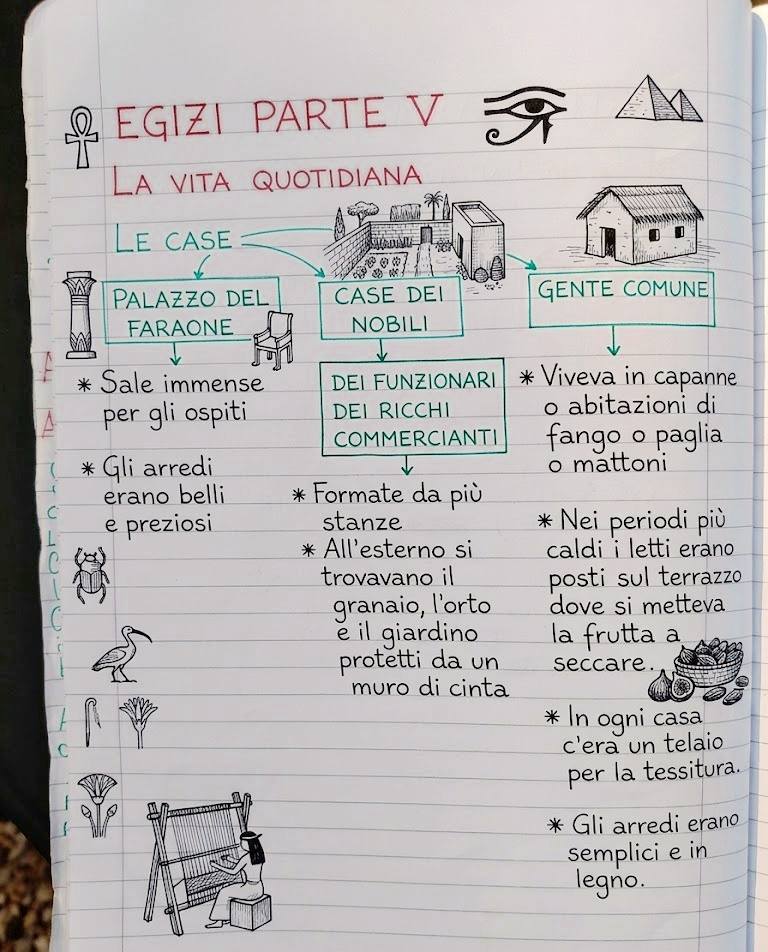 EGIZI PARTE V
LA VITA QUOTIDIANA
LE CASE
PALAZZO DEL
FARAONE
* Sale immense
per gli ospiti
* Gli arredi
erano belli
e preziosi
CASE DEI
NOBILI
DEI FUNZIONARI
DEI RICCHI
COMMERCIANTI
* Formate da più
stanze
* All'esterno si
trovavano il
granaio, l'orto
e il giardino
protetti da un
muro di cinta
GENTE COMUNE
* Viveva in capanne
o abitazioni di
fango o paglia
o mattoni
* Nei periodi più
caldi i letti erano
posti sul terrazzo
dove si metteva
la frutta a
seccare.
* In ogni casa
c'era un telaio
per la tessitura.
* Gli arredi erano
semplici e in
legno.